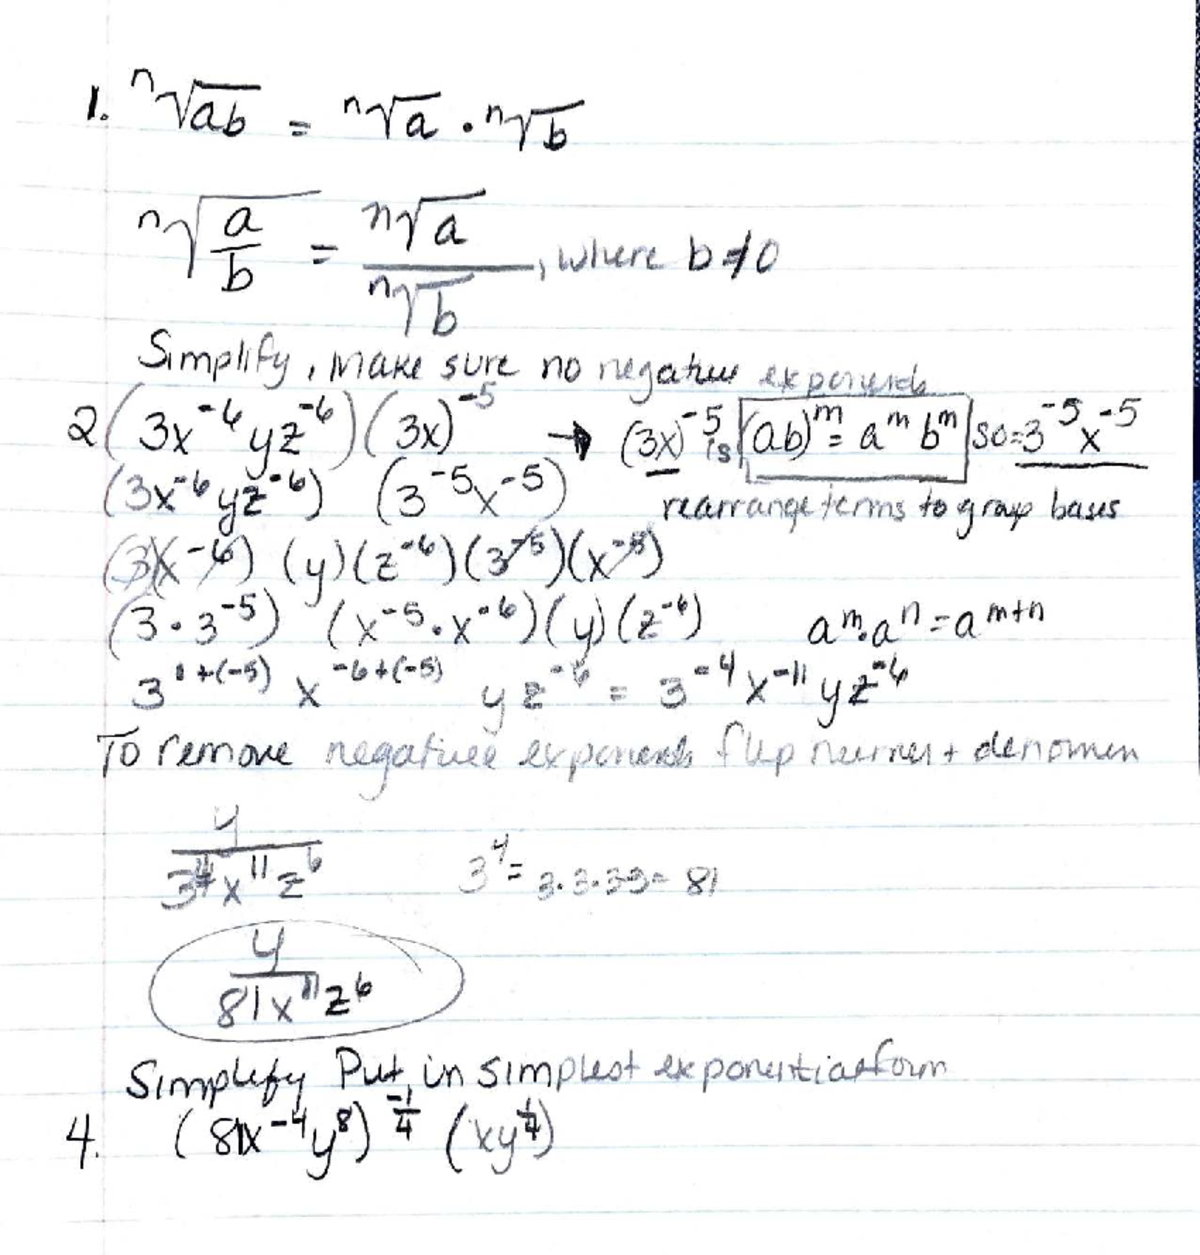 1. ⁿ√ab = ⁿ√a · ⁿ√b
ⁿ√(a/b) = ⁿ√a / ⁿ√b , where b ≠ 0
Simplify, make sure no negative exponents
2 (3x⁻⁶yz⁻⁶)(3x)⁻⁵ → (3x)⁻⁵ is (ab)ᵐ = aᵐ bᵐ so = 3⁻⁵x⁻⁵
(3x⁻⁶yz⁻⁶) (3⁻⁵x⁻⁵) rearrange terms to group bases
(3)(x⁻⁶) (y)(z⁻⁶)(3⁻⁵)(x⁻⁵)
(3·3⁻⁵) (x⁻⁵·x⁻⁶)(y)(z⁻⁶) aᵐ·aⁿ=aᵐ⁺ⁿ
3¹⁺⁽⁻⁵⁾ x⁻⁶⁺⁽⁻⁵⁾ yz⁻⁶ = 3⁻⁴x⁻¹¹yz⁻⁶
To remove negative exponents flip numer + denomen
y / 3⁴x¹¹z⁶ 3⁴= 3·3·3·3= 81
y / 81x¹¹z⁶
Simplify Put in simplest exponential form
4. (81x⁻⁴y⁸)^(-1/4) (xy^(1/4))